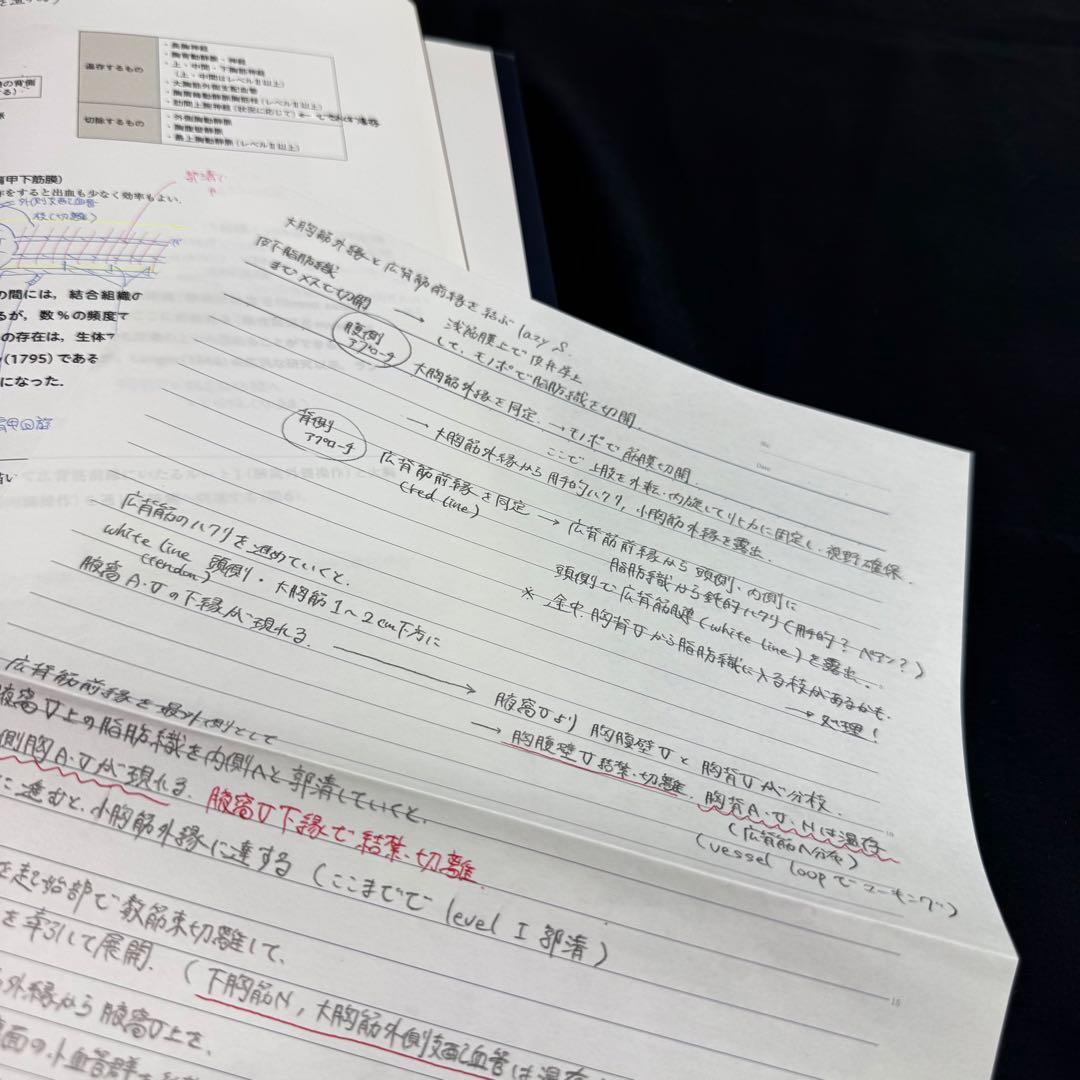 温存するもの
・長胸神経
・胸背動静脈・神経
・上・中間・下胸筋神経
（上・中間はレベルⅡ以上）
・大胸筋外側支配血管
・胸肩峰動静脈胸筋枝（レベルⅡ以上）
・肋間上腕神経（状況に応じて）
切除するもの
・外側胸動静脈
・胸腹壁静脈
・最上胸動静脈（レベルⅡ以上）
の背側
する）
肩甲下筋膜）
をすると出血も少なく効率もよい．
外側支配血管
枝（切離）
郭清
の間には，結合組織の
るが，数％の頻度で
の存在は，生体
（1795）である
になった．
肩甲回旋
大胸筋外縁と広背筋前縁を結ぶ lazy S.
皮下脂肪織
までメスで切開 → 浅筋膜上で皮弁挙上
して、モノポで脂肪織を切開
腹側
アプローチ
大胸筋外縁を同定. → モノポで筋膜切開
ここで上肢を外転・内旋してリヒカに固定し、視野確保.
→ 大胸筋外縁から用手的ハクリ，小胸筋外縁を露出.
背側
アプローチ
広背筋前縁を同定 → 広背筋前縁から頭側、内側に
(red line)
脂肪織から鈍的ハクリ（用手的？ペアン？）
頭側で広背筋腱（white line）を露出.
※ 途中、胸背Vから脂肪織に入る枝があるかも.
→ 処理！
広背筋のハクリを進めていくと、
white line 頭側・大胸筋 1〜2cm下方に
(tendon)
腋窩A・Vの下縁が現れる. →
腋窩Vより胸腹壁Vと胸背Vが分枝.
→ 胸腹壁V結紮・切離. 胸背A.V.Nは温存
（広背筋N分布）
（vessel loopでマーキング）
広背筋前縁を最外側として
腋窩V上の脂肪織を内側へと郭清していくと、
側胸A・Vが現れる. 腋窩V下縁で結紮・切離.
に進むと、小胸筋外縁に達する（ここまでで level I 郭清）
を起始部で数筋束切離して、
を牽引して展開.（下胸筋N，大胸筋外側支配血管は温存
外縁から腋窩V上を、
面の小血管群を
10
15